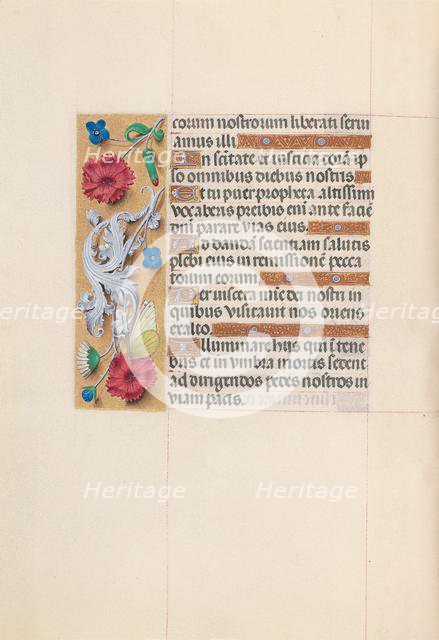 corum nostrorum liberati serui
amus illi
In sc̄itate et iusticia corā ip
so omnibus diebus nostris.
Et tu puer propheta altissimi
vocaberis preibis enī ante facie
dn̄i parare vias eius.
Ad dandā scientiam salutis
plebi eius in remissionē pecca
torum eorum
Per viscera mīe dei nostri in
quibus visitauit nos oriens
ex alto.
Illuminare hijs qui ī tene
bris et in vmbra mortis sedent
ad dirigendos pedes nostros in
viam pacis.
Heritage
Heritage
Heritage
Heritage
Heritage
Heritage
Heritage